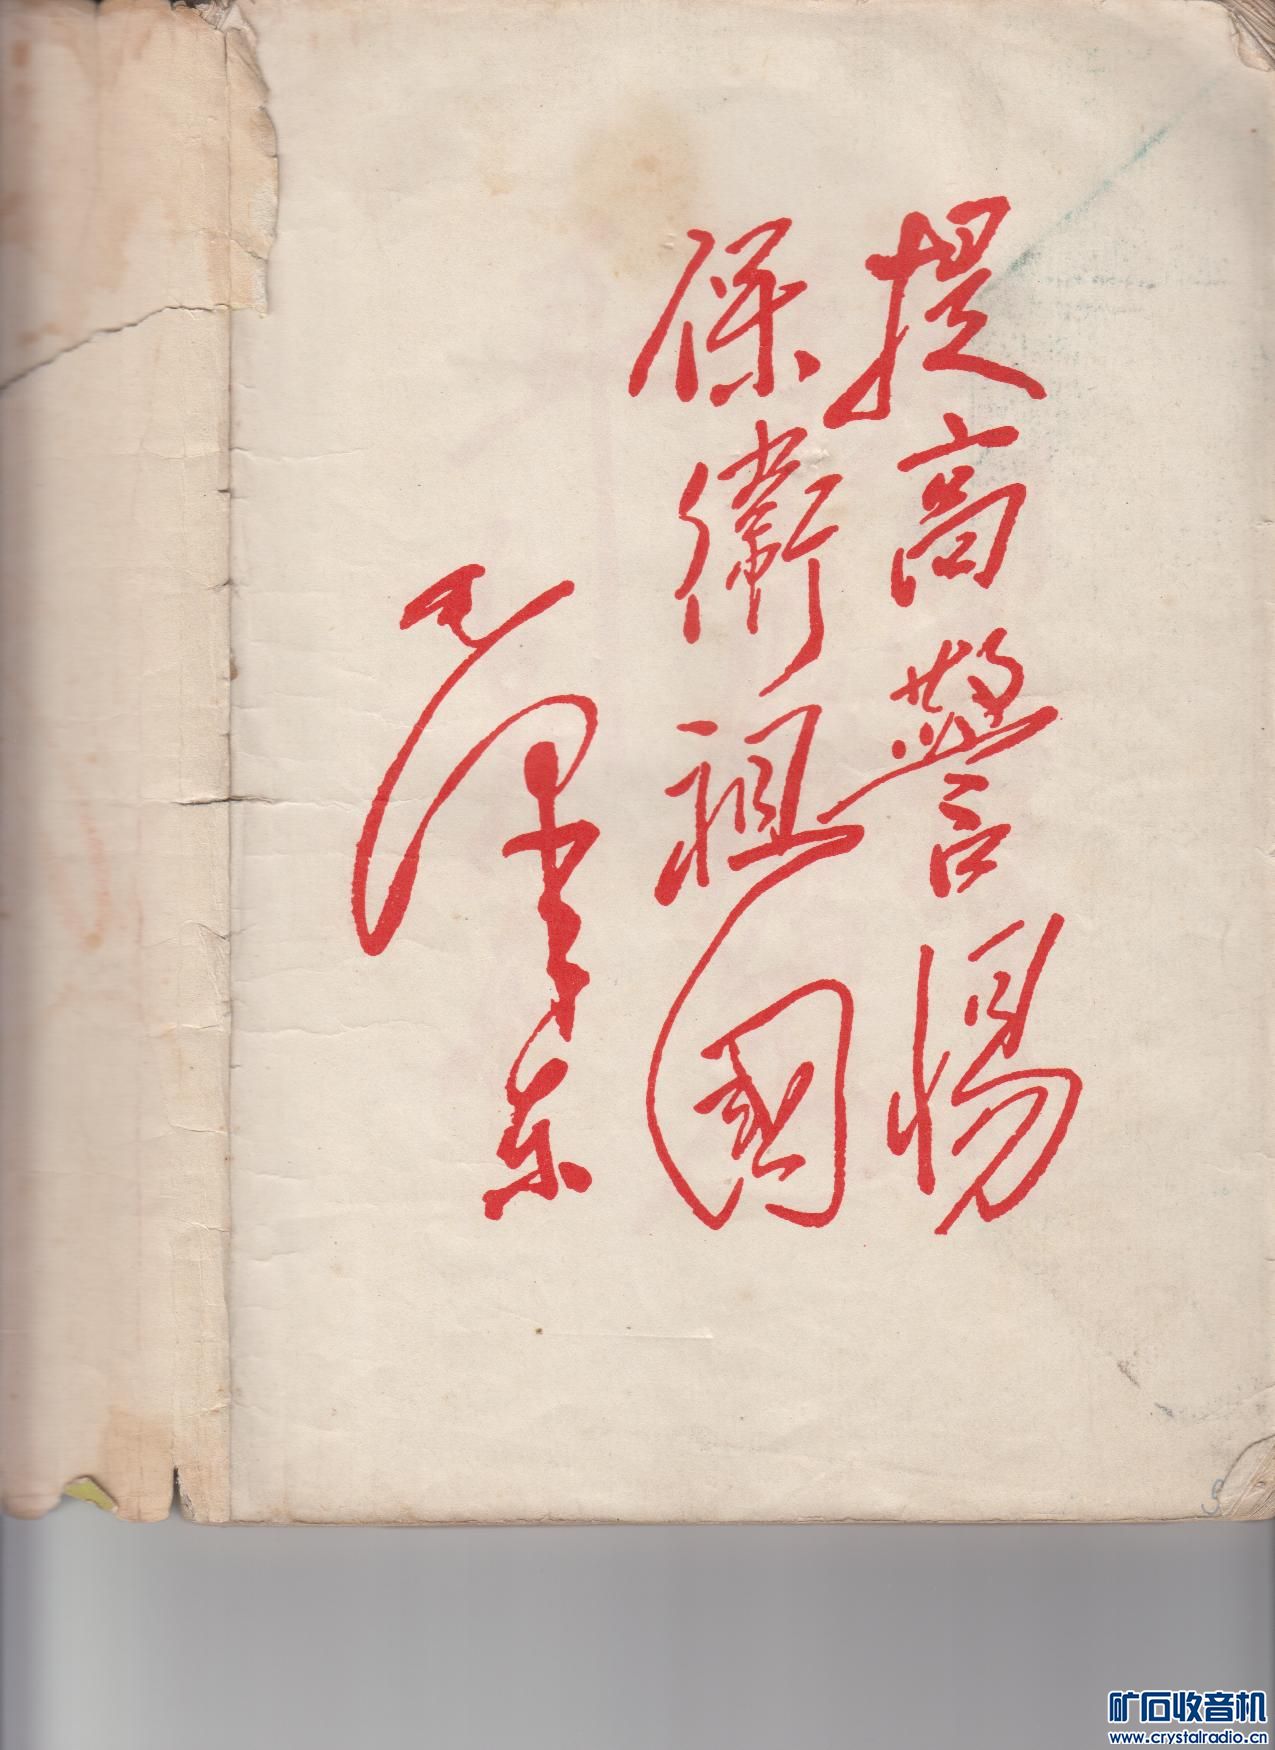 提高警惕
保衛祖國
毛泽东
矿石收音机
www.crystalradio.cn